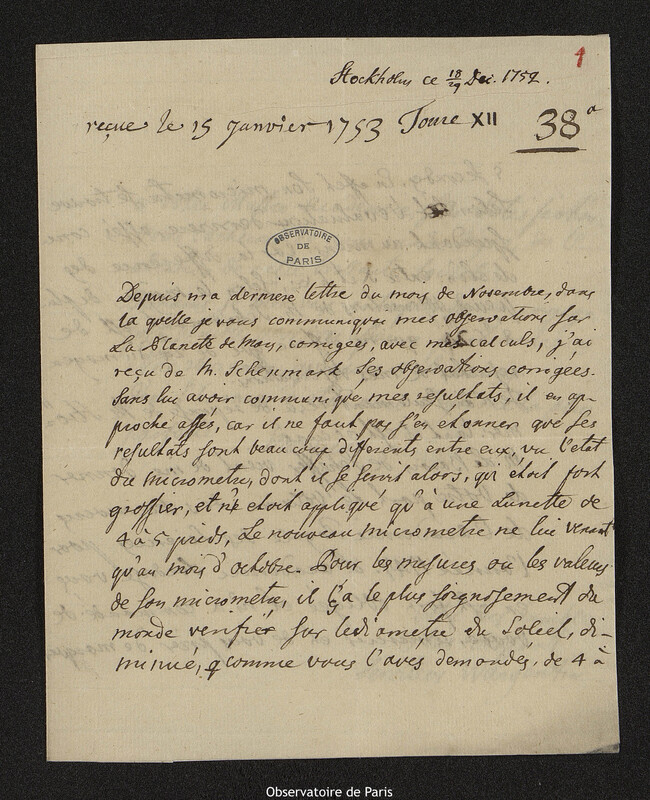 1
Stockholm ce 18/29 Dec. 1752.
reçue le 15 Janvier 1753 Tome XII 38a
OBSERVATOIRE
DE
PARIS
Depuis ma derniere lettre du mois de Novembre, dans
la quelle je vous communiquai mes observations sur
La Planete de Mars, corrigées, avec mes calculs, j'ai
reçu de M. Schenmark ses observations corrigées.
Sans lui avoir communiqué mes resultats, il en ap-
proche assés, car il ne faut pas s'en étonner que ses
resultats sont beaucoup differents entre eux, vu l'etat
du micrometre, dont il se servit alors, qui étoit fort
grossier, et n'etoit appliqué qu'à une Lunette de
4 à 5 pieds, Le nouveau micrometre ne lui venant
qu'au mois d'Octobre. Pour les mesures ou les valeurs
de son micrometre, il l'a le plus soigneusement du
monde verifié sur le diametre du Soleil, di-
minué, comme vous l'avés demandés, de 4 à
Observatoire de Paris